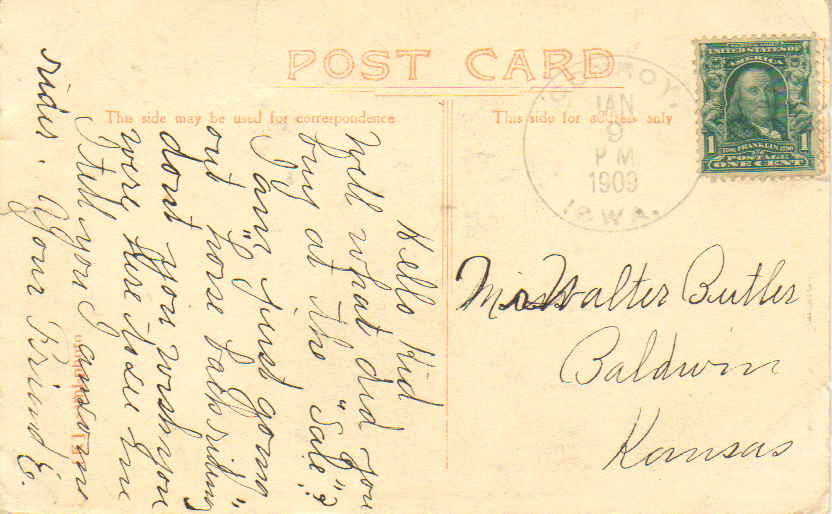 POST CARD
This side may be used for correspondence
This side for address only
JAN
9
P M
1909
IOWA.
UNITED STATES OF
AMERICA
1706 FRANKLIN 1790
POSTAGE
1 ONE CENT 1
Hello Kid
Well what did you
buy at the "Sale"?
I am "just going
out horse back riding"
dont you wish you
were here to see me
I tell you I am some
rider. Your Friend E.
Walter Butler
Baldwin
Kansas